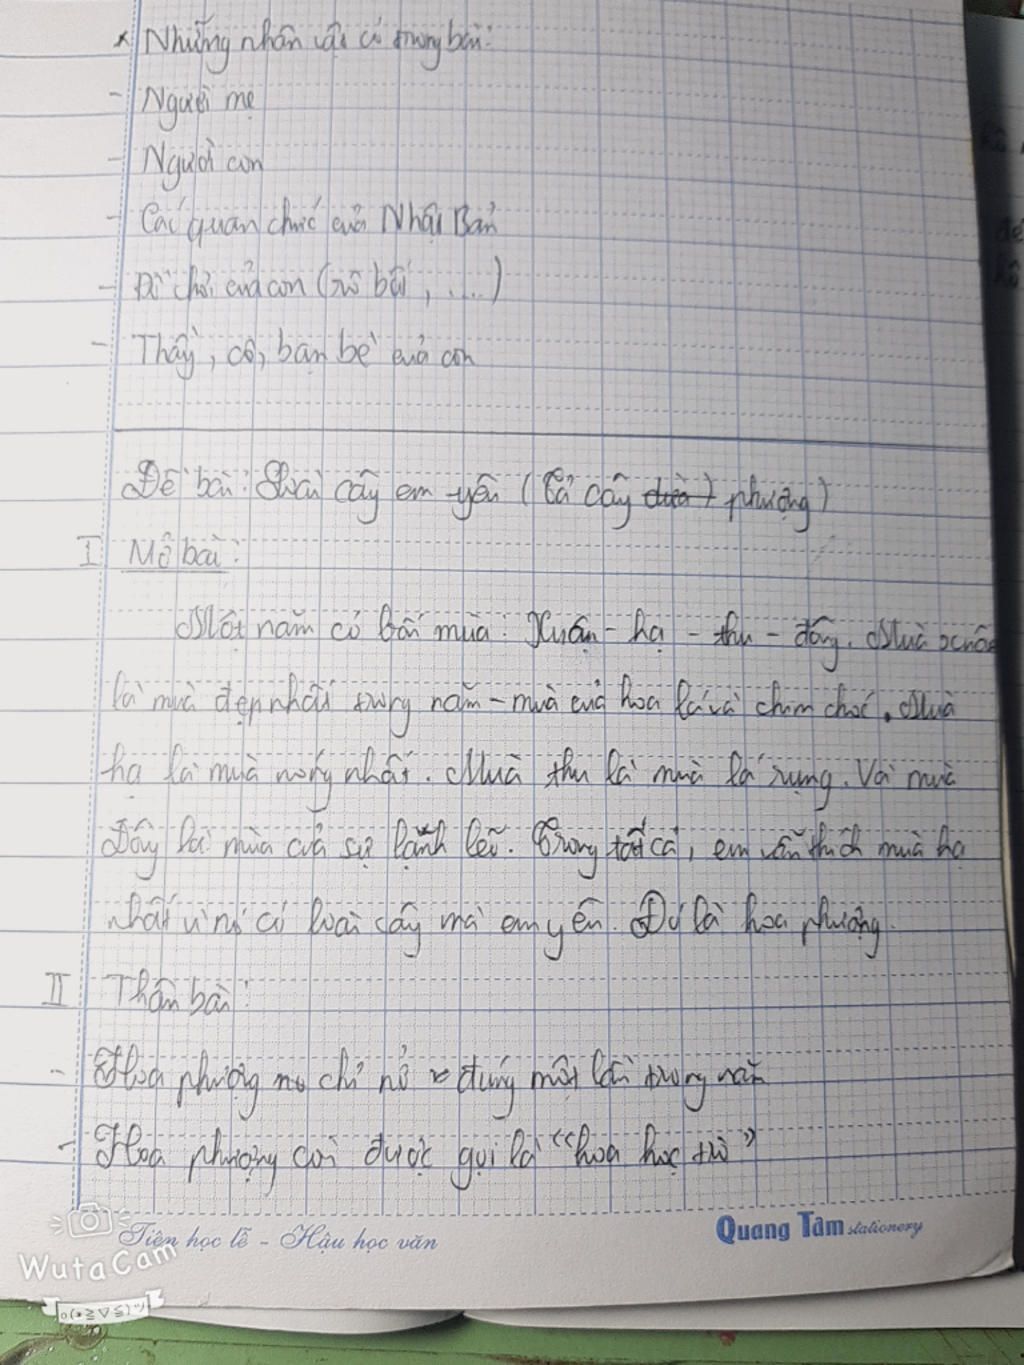 * Những nhân vật có trong bài:
- Người mẹ
- Người con
- Các quan chức của Nhật Bản
- Đồ chơi của con (rô bốt, ....)
- Thầy, cô, bạn bè của con
Đề bài: Loài cây em yêu (Tả cây dừa) phượng)
I Mở bài:
Một năm có bốn mùa: Xuân - hạ - thu - đông. Mùa xuân
là mùa đẹp nhất trong năm - mùa của hoa lá và chim chóc. Mùa
hạ là mùa nóng nhất. Mùa thu là mùa lá rụng. Và mùa
Đông là mùa của sự lạnh lẽo. Trong tất cả, em vẫn thích mùa hạ
nhất vì nó có loài cây mà em yêu. Đó là hoa phượng.
II Thân bài:
- Hoa phượng nó chỉ nở đúng một lần trong năm
- Hoa phượng còn được gọi là "hoa học trò"
Tiên học lễ - Hậu học văn
Quang Tâm stationery
WutaCam